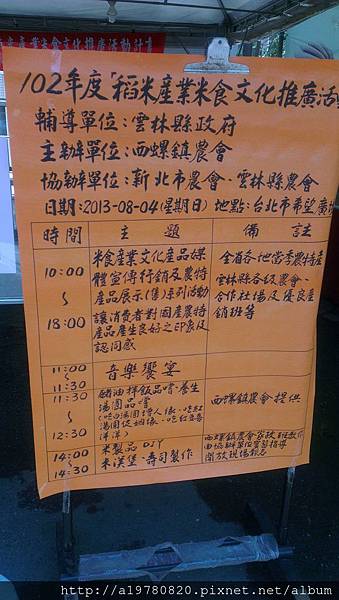 米食文化推廣活動計畫
102年度「稻米產業米食文化推廣活動
輔導單位:雲林縣政府
主辦單位:西螺鎮農會
協辦單位:新北市農會、雲林縣農會
日期:2013-08-04(星期日) 地點:台北市希望廣
時間 主題 備註
10:00
~
18:00
米食產業文化產品媒
體宣傳行銷及農特
產品展示(售)系列活動
讓消費者對國產農特
產品產生良好之印象及
認同感
全省各地當季農特產
雲林縣各級農會、
合作社場及優良產
銷班等
11:00
~
11:30
音樂饗宴
11:30
~
12:30
豬油拌飯品嚐、養生
湯圓品嚐
湯圓促姻緣、吃紅喜
洋洋)
西螺鎮農會提供
14:00
~
14:30
米製品DIY
米漢堡、壽司製作
西螺鎮農會家政班
開放現場報名
http://a19780820.pixnet.net/album